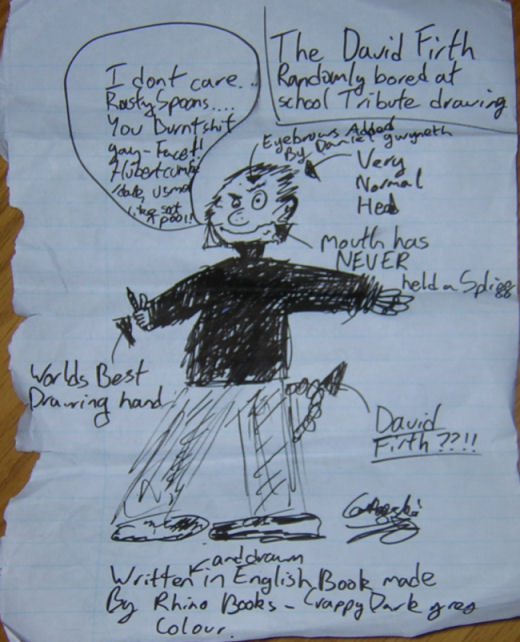 I dont care...
Rusty Spoons....
You Burnt shit
gay-Facet!
Hubert
The David Firth
Randomly bored at
school Tribute drawing
Eyebrows Added
By Daniel Gwyneth
Very
Normal
Head
mouth has
NEVER
held a Spliff
Worlds Best
Drawing hand
David
Firth??!!
and drawn
Written in English Book made
By Rhino Books - Crappy Dark grey
Colour.